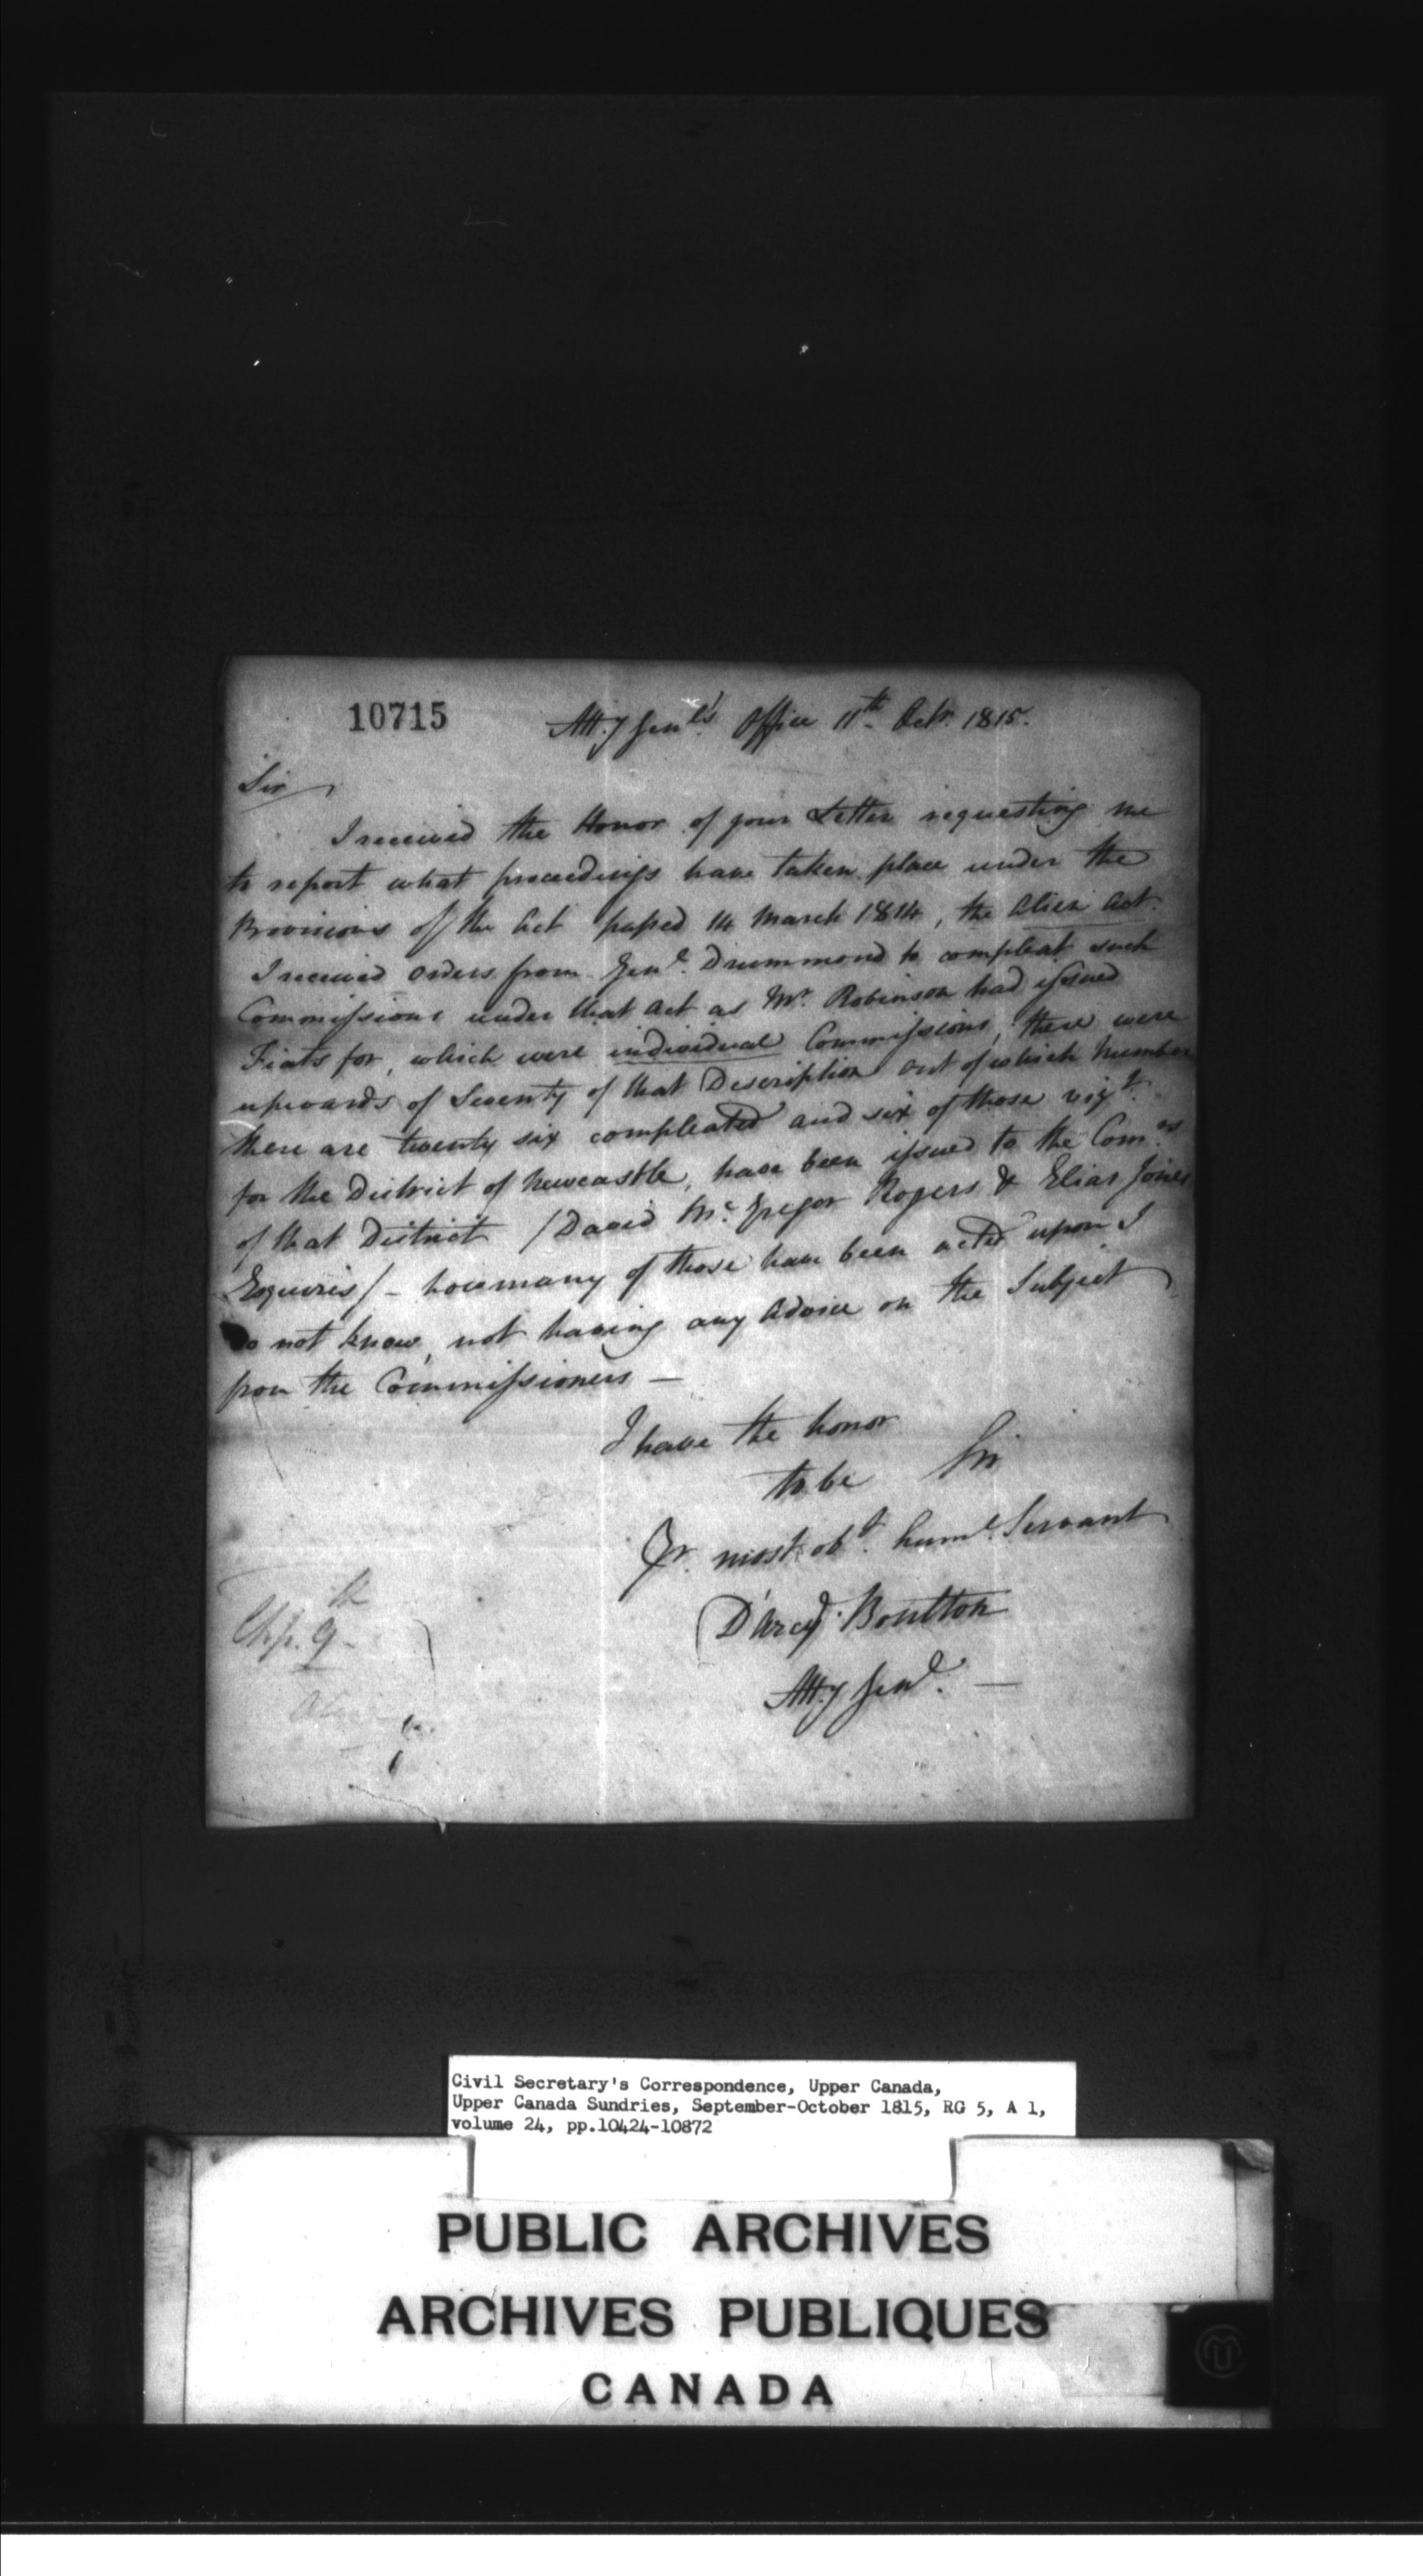 10715
Atty Genl's Office 11th Octr. 1815.
Sir
I received the Honor of your Letter requesting me
to report what proceedings have taken place under the
Provisions of the Act passed 14 March 1814, the Alien Act.
I received orders from Genl. Drummond to compleat such
Commissions under that Act as Mr. Robinson had issued
Fiats for, which were individual Commissions, there were
upwards of Seventy of that Description out of which Number
there are twenty six compleated and six of those vizt.
for the District of Newcastle, have been issued to the Comrs
of that District /David Mc.Gregor Rogers & Elias Jones
Esquires/ - how many of those have been acted upon I
do not know, not having any Advice on the Subject
from the Commissioners —
I have the honor
to be Sir
Yr. most obt. huml. Servant
D'Arcy Boulton
Atty Genl. —
Chp. 9th
Civil Secretary's Correspondence, Upper Canada,
Upper Canada Sundries, September-October 1815, RG 5, A 1,
volume 24, pp.10424-10872
PUBLIC ARCHIVES
ARCHIVES PUBLIQUES
CANADA